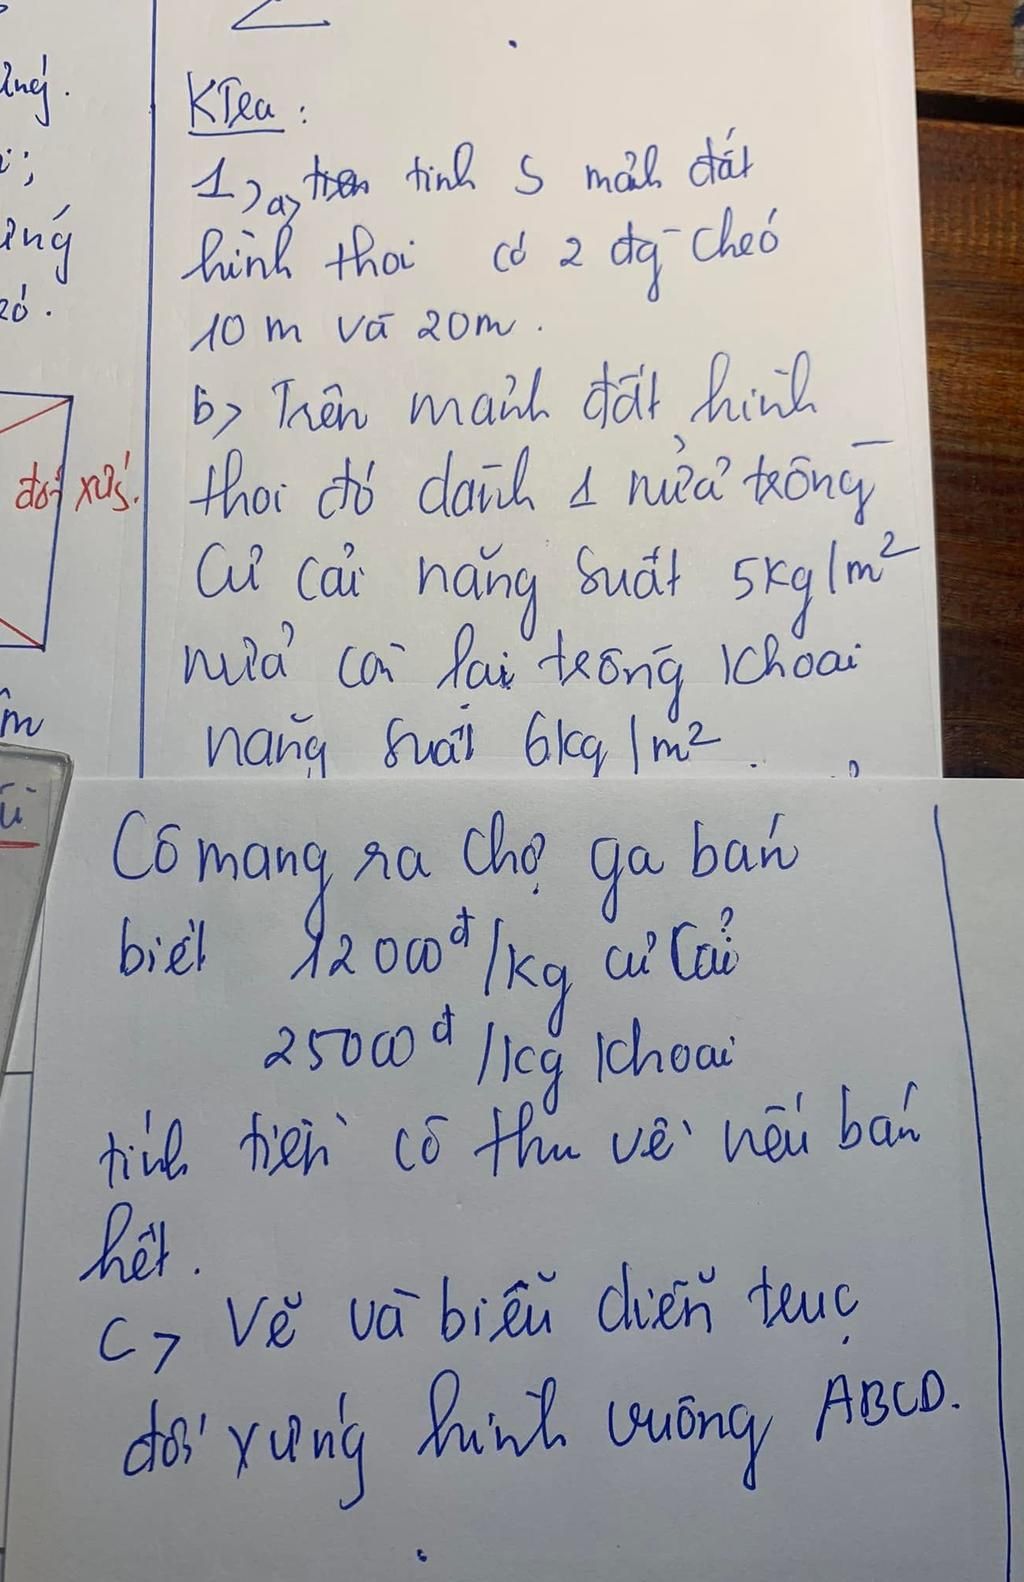 ứng.
i;
ứng
xó.
đối xứng.
m
KTra:
1, a, tính S mảnh đất
hình thoi có 2 đg chéo
10 m và 20m.
b, Trên mảnh đất hình
thoi đó dành 1 nửa trồng
Củ cải năng suất 5kg/m²
nửa còn lại trồng khoai
năng suất 6kg/m².
Cô mang ra chợ ga bán
biết 12000đ/kg củ cải
25000đ/kg khoai
tính tiền cô thu về nếu bán
hết.
C, Vẽ và biểu diễn trục
đối xứng hình vuông ABCD.